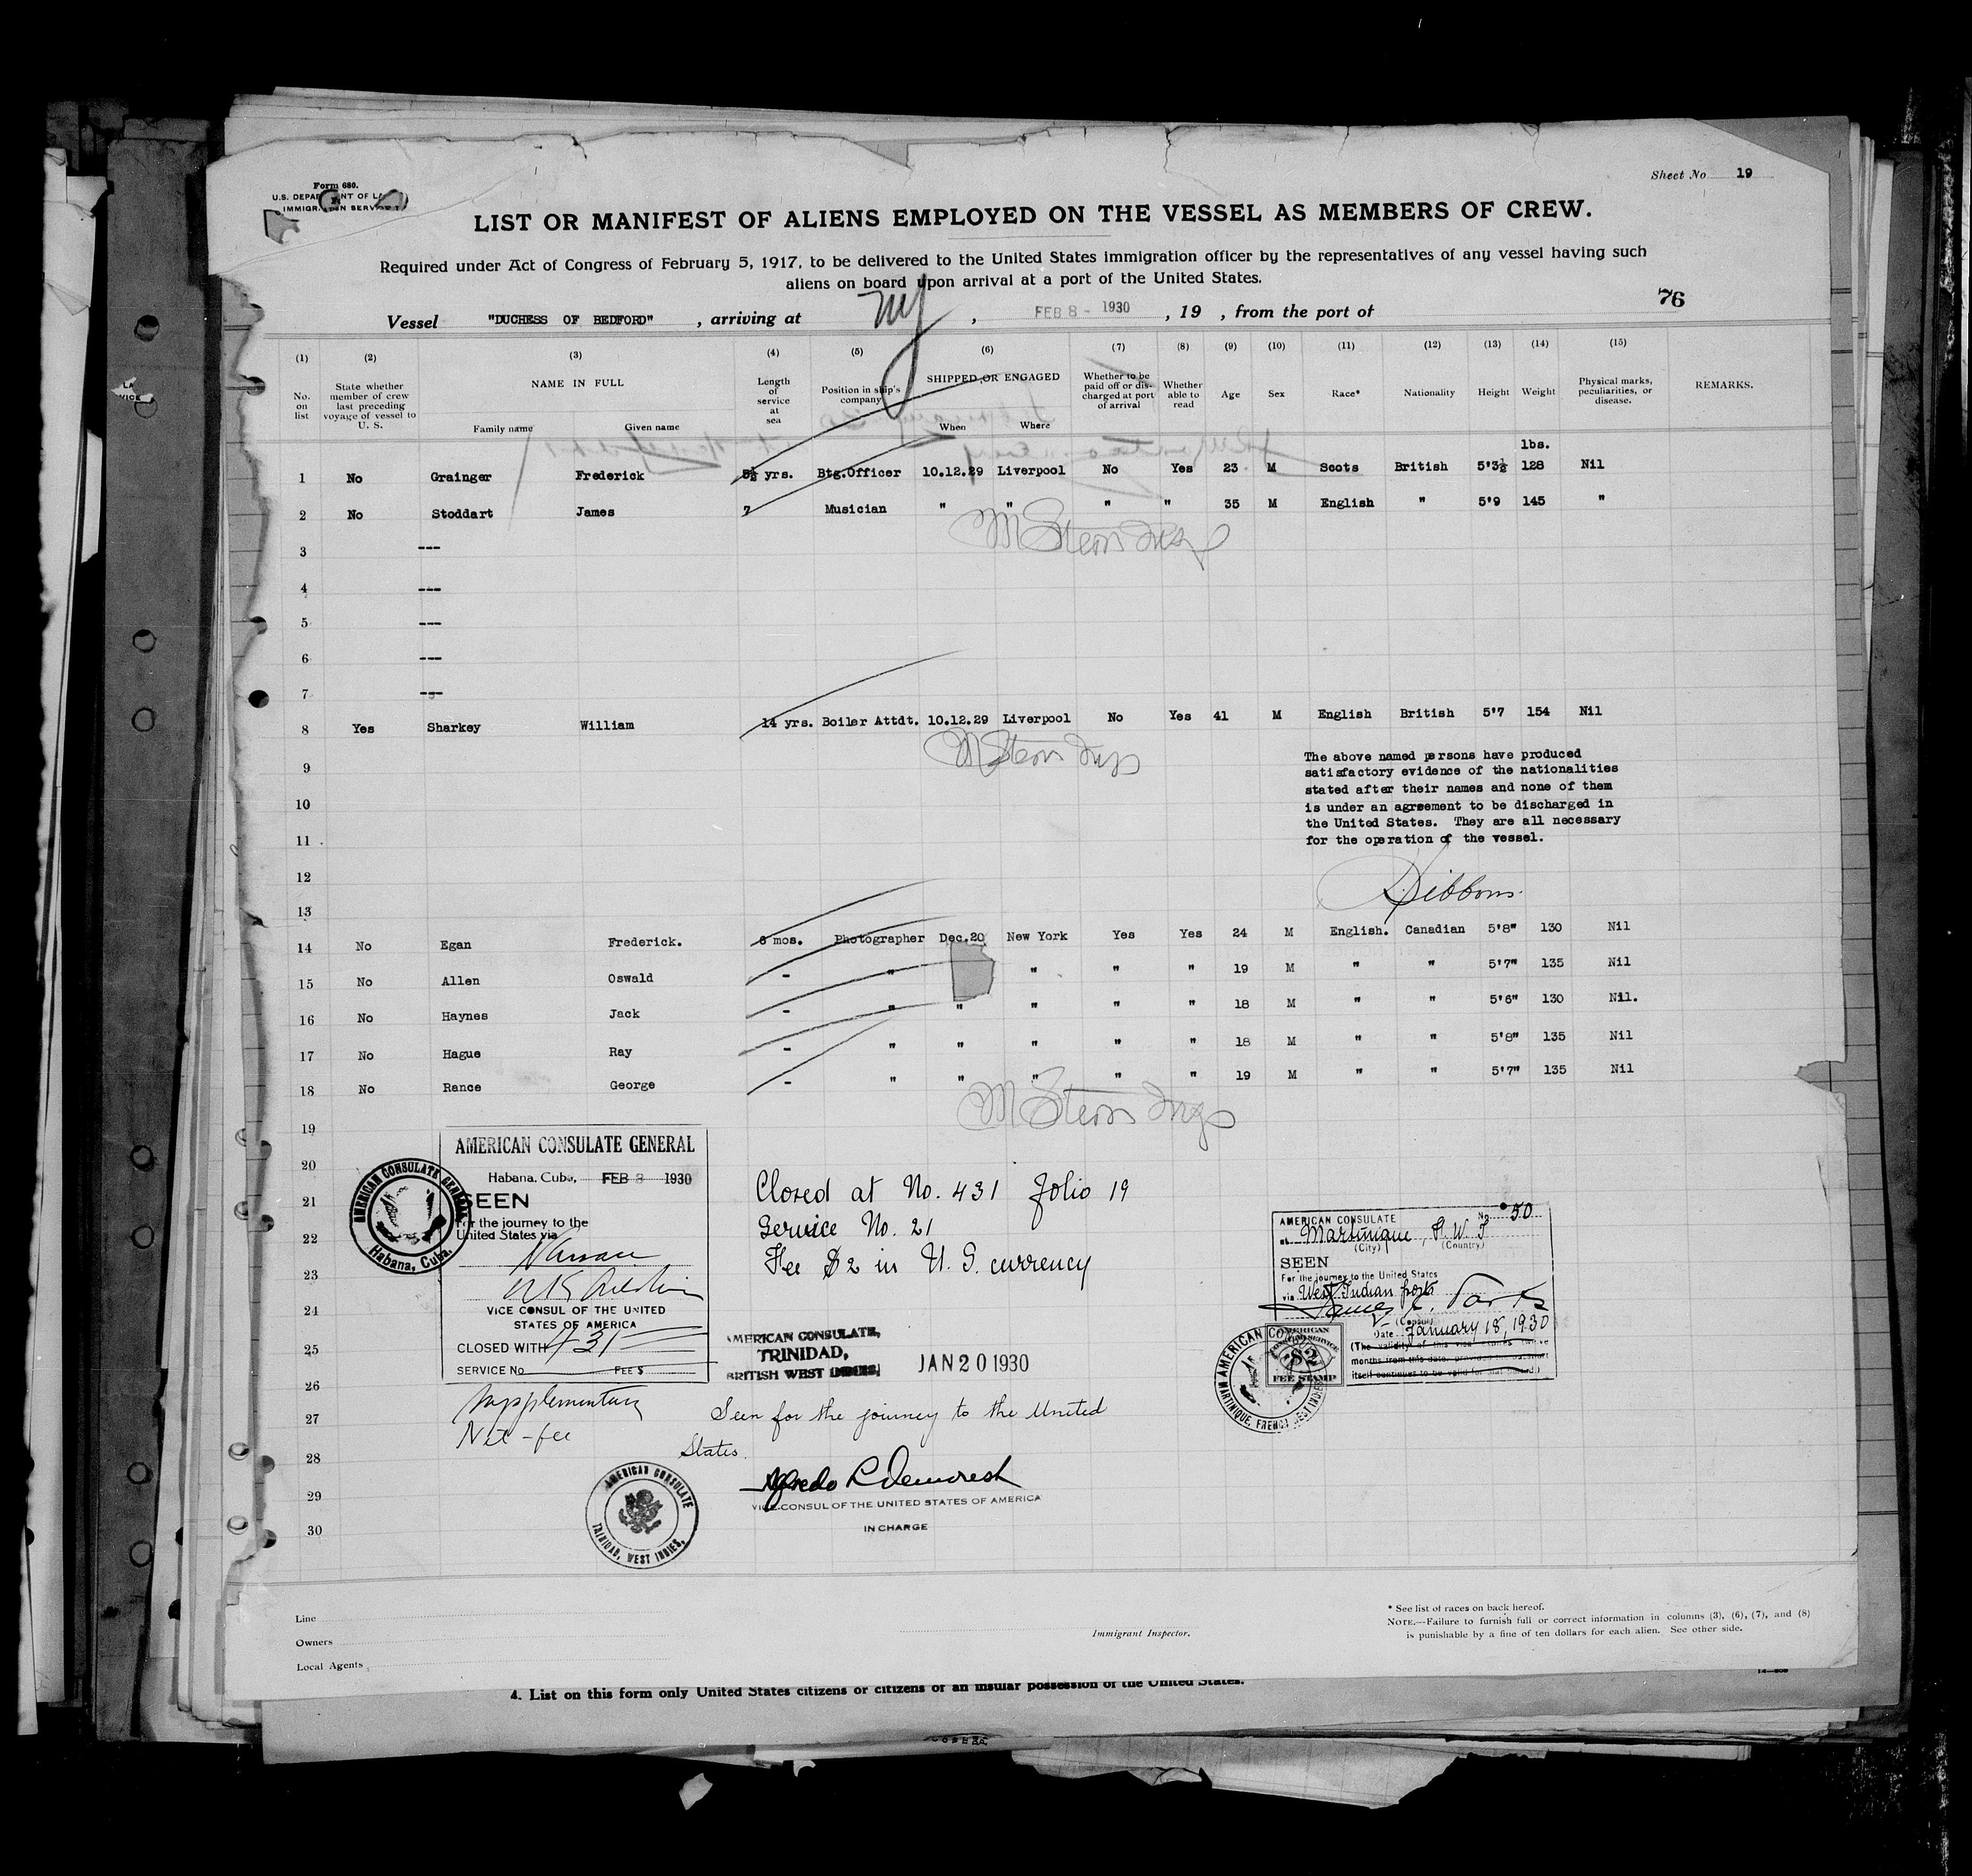 Form 680.
U.S. DEPARTMENT OF LA
IMMIGRATION SERVICE
Sheet No 19
LIST OR MANIFEST OF ALIENS EMPLOYED ON THE VESSEL AS MEMBERS OF CREW.
Required under Act of Congress of February 5, 1917, to be delivered to the United States immigration officer by the representatives of any vessel having such
aliens on board upon arrival at a port of the United States.
76
Vessel "DUCHESS OF BEDFORD" , arriving at NY , FEB 8 - 1930 , 19 , from the port of
(1) (2) (3) (4) (5) (6) (7) (8) (9) (10) (11) (12) (13) (14) (15)
No. on list State whether member of crew last preceding voyage of vessel to U. S. NAME IN FULL Family name Given name Length of service at sea Position in ship's company SHIPPED OR ENGAGED When Where Whether to be paid off or discharged at port of arrival Whether able to read Age Sex Race* Nationality Height Weight Physical marks, peculiarities, or disease. REMARKS.
lbs.
1 No Grainger Frederick 5½ yrs. Btg.Officer 10.12.29 Liverpool No Yes 23 M Scots British 5'3½ 128 Nil
2 No Stoddart James 7 Musician " " " " 35 M English " 5'9 145 "
M Stern Insp
3 ---
4 ---
5 ---
6 ---
7 ---
8 Yes Sharkey William 14 yrs. Boiler Attdt. 10.12.29 Liverpool No Yes 41 M English British 5'7 154 Nil
M Stern Insp
9
10
11
12
13
The above named persons have produced
satisfactory evidence of the nationalities
stated after their names and none of them
is under an agreement to be discharged in
the United States. They are all necessary
for the operation of the vessel.
Gibbons.
14 No Egan Frederick. 6 mos. Photographer Dec.20 New York Yes Yes 24 M English. Canadian 5'8" 130 Nil
15 No Allen Oswald - " " " " 19 M " " 5'7" 135 Nil
16 No Haynes Jack - " " " " " 18 M " " 5'6" 130 Nil.
17 No Hague Ray - " " " " " 18 M " " 5'8" 135 Nil
18 No Rance George - " " " " " 19 M " " 5'7" 135 Nil
M Stern Insp
19
20
21
22
23
24
25
26
27
28
29
30
AMERICAN CONSULATE GENERAL
Habana, Cuba, FEB 8 1930
SEEN
For the journey to the
United States via
Nassau
VICE CONSUL OF THE UNITED
STATES OF AMERICA
CLOSED WITH 431
SERVICE No FEE $
Supplementary
No - fee
AMERICAN CONSULATE GENERAL
Habana, Cuba.
Closed at No. 431 Folio 19
Service No. 21
Fee $2 in U. S. currency
AMERICAN CONSULATE,
TRINIDAD,
BRITISH WEST INDIES,
JAN 20 1930
Seen for the journey to the United
States.
Alfredo R Demorest
VICE CONSUL OF THE UNITED STATES OF AMERICA
IN CHARGE
AMERICAN CONSULATE
TRINIDAD, WEST INDIES.
AMERICAN CONSULATE No. 50
at Martinique, F. W. I
(City) (Country)
SEEN
For the journey to the United States
via West Indian ports
James E. Parks
V- (Consul)
Date January 18, 1930
(The validity of this visa expires twelve
months from this date, provided the passport
itself continues to be valid for that period.)
AMERICAN
CONSULAR SERVICE
$2
FEE STAMP
AMERICAN CONSULATE
MARTINIQUE, FRENCH WEST INDIES
Line
Owners
Local Agents
Immigrant Inspector.
* See list of races on back hereof.
NOTE.—Failure to furnish full or correct information in columns (3), (6), (7), and (8)
is punishable by a fine of ten dollars for each alien. See other side.
4. List on this form only United States citizens or citizens of an insular possession of the United States.